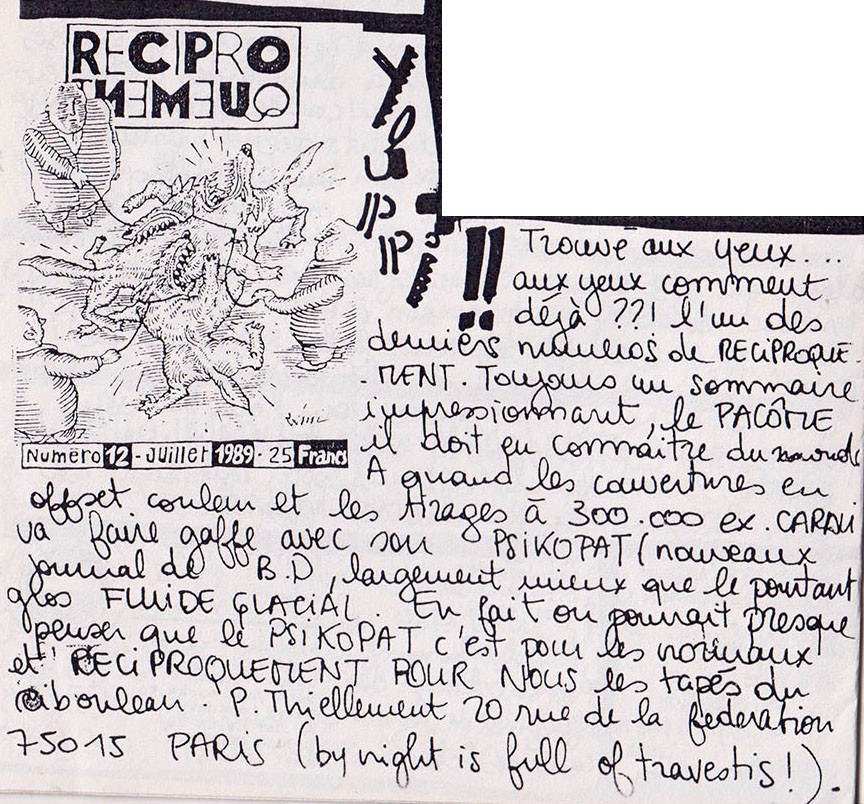 RECIPRO
QUEMENT
Numéro 12 - Juillet 1989 - 25 Francs
Youppi !!
Trouve aux yeux...
aux yeux comment
déjà ??! l'un des
derniers numéros de RECIPROQUE-
-MENT. Toujours un sommaire
impressionnant, le PACÔME
il doit en connaître du monde
A quand les couvertures en
offset couleur et les tirages à 300.000 ex. CARALI
va faire gaffe avec son PSIKOPAT (nouveaux
journal de B.D, largement mieux que le pourtant
glos FLUIDE GLACIAL. En fait on pourrait presque
penser que le PSIKOPAT c'est pour les normaux
et RECIPROQUEMENT POUR NOUS les tapés du
cibouleau. P. Thiellement 20 rue de la federation
75015 PARIS (by night is full of travestis!).